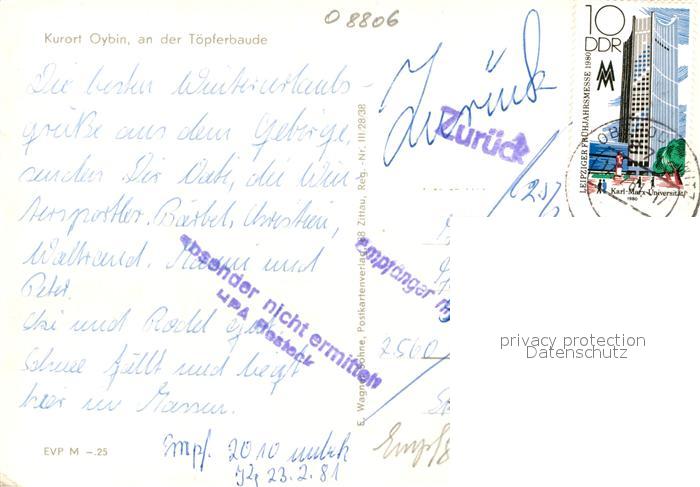 O 8806
Kurort Oybin, an der Töpferbaude
Die besten Winterurlaubs-
grüße aus dem Gebirge,
senden Dir Vati, die Win-
tersportler Bärbel, Christien,
Waltraud, und
Peter.
Ski und Rodel gut
Schnee fällt und liegt
hier in Massen.
EVP M –.25
Empf. 2010 unbek
23.2.81
E. Wagner Söhne, Postkartenverlag, 88 Zittau, Reg.-Nr. III/28/38
Absender nicht ermittelt
HPA Rostock
Zurück
Zurück
Empfänger
2560
Empf
10
DDR
MM
LEIPZIGER FRÜHJAHRSMESSE 1980
Karl-Marx-Universität
1980
privacy protection
Datenschutz